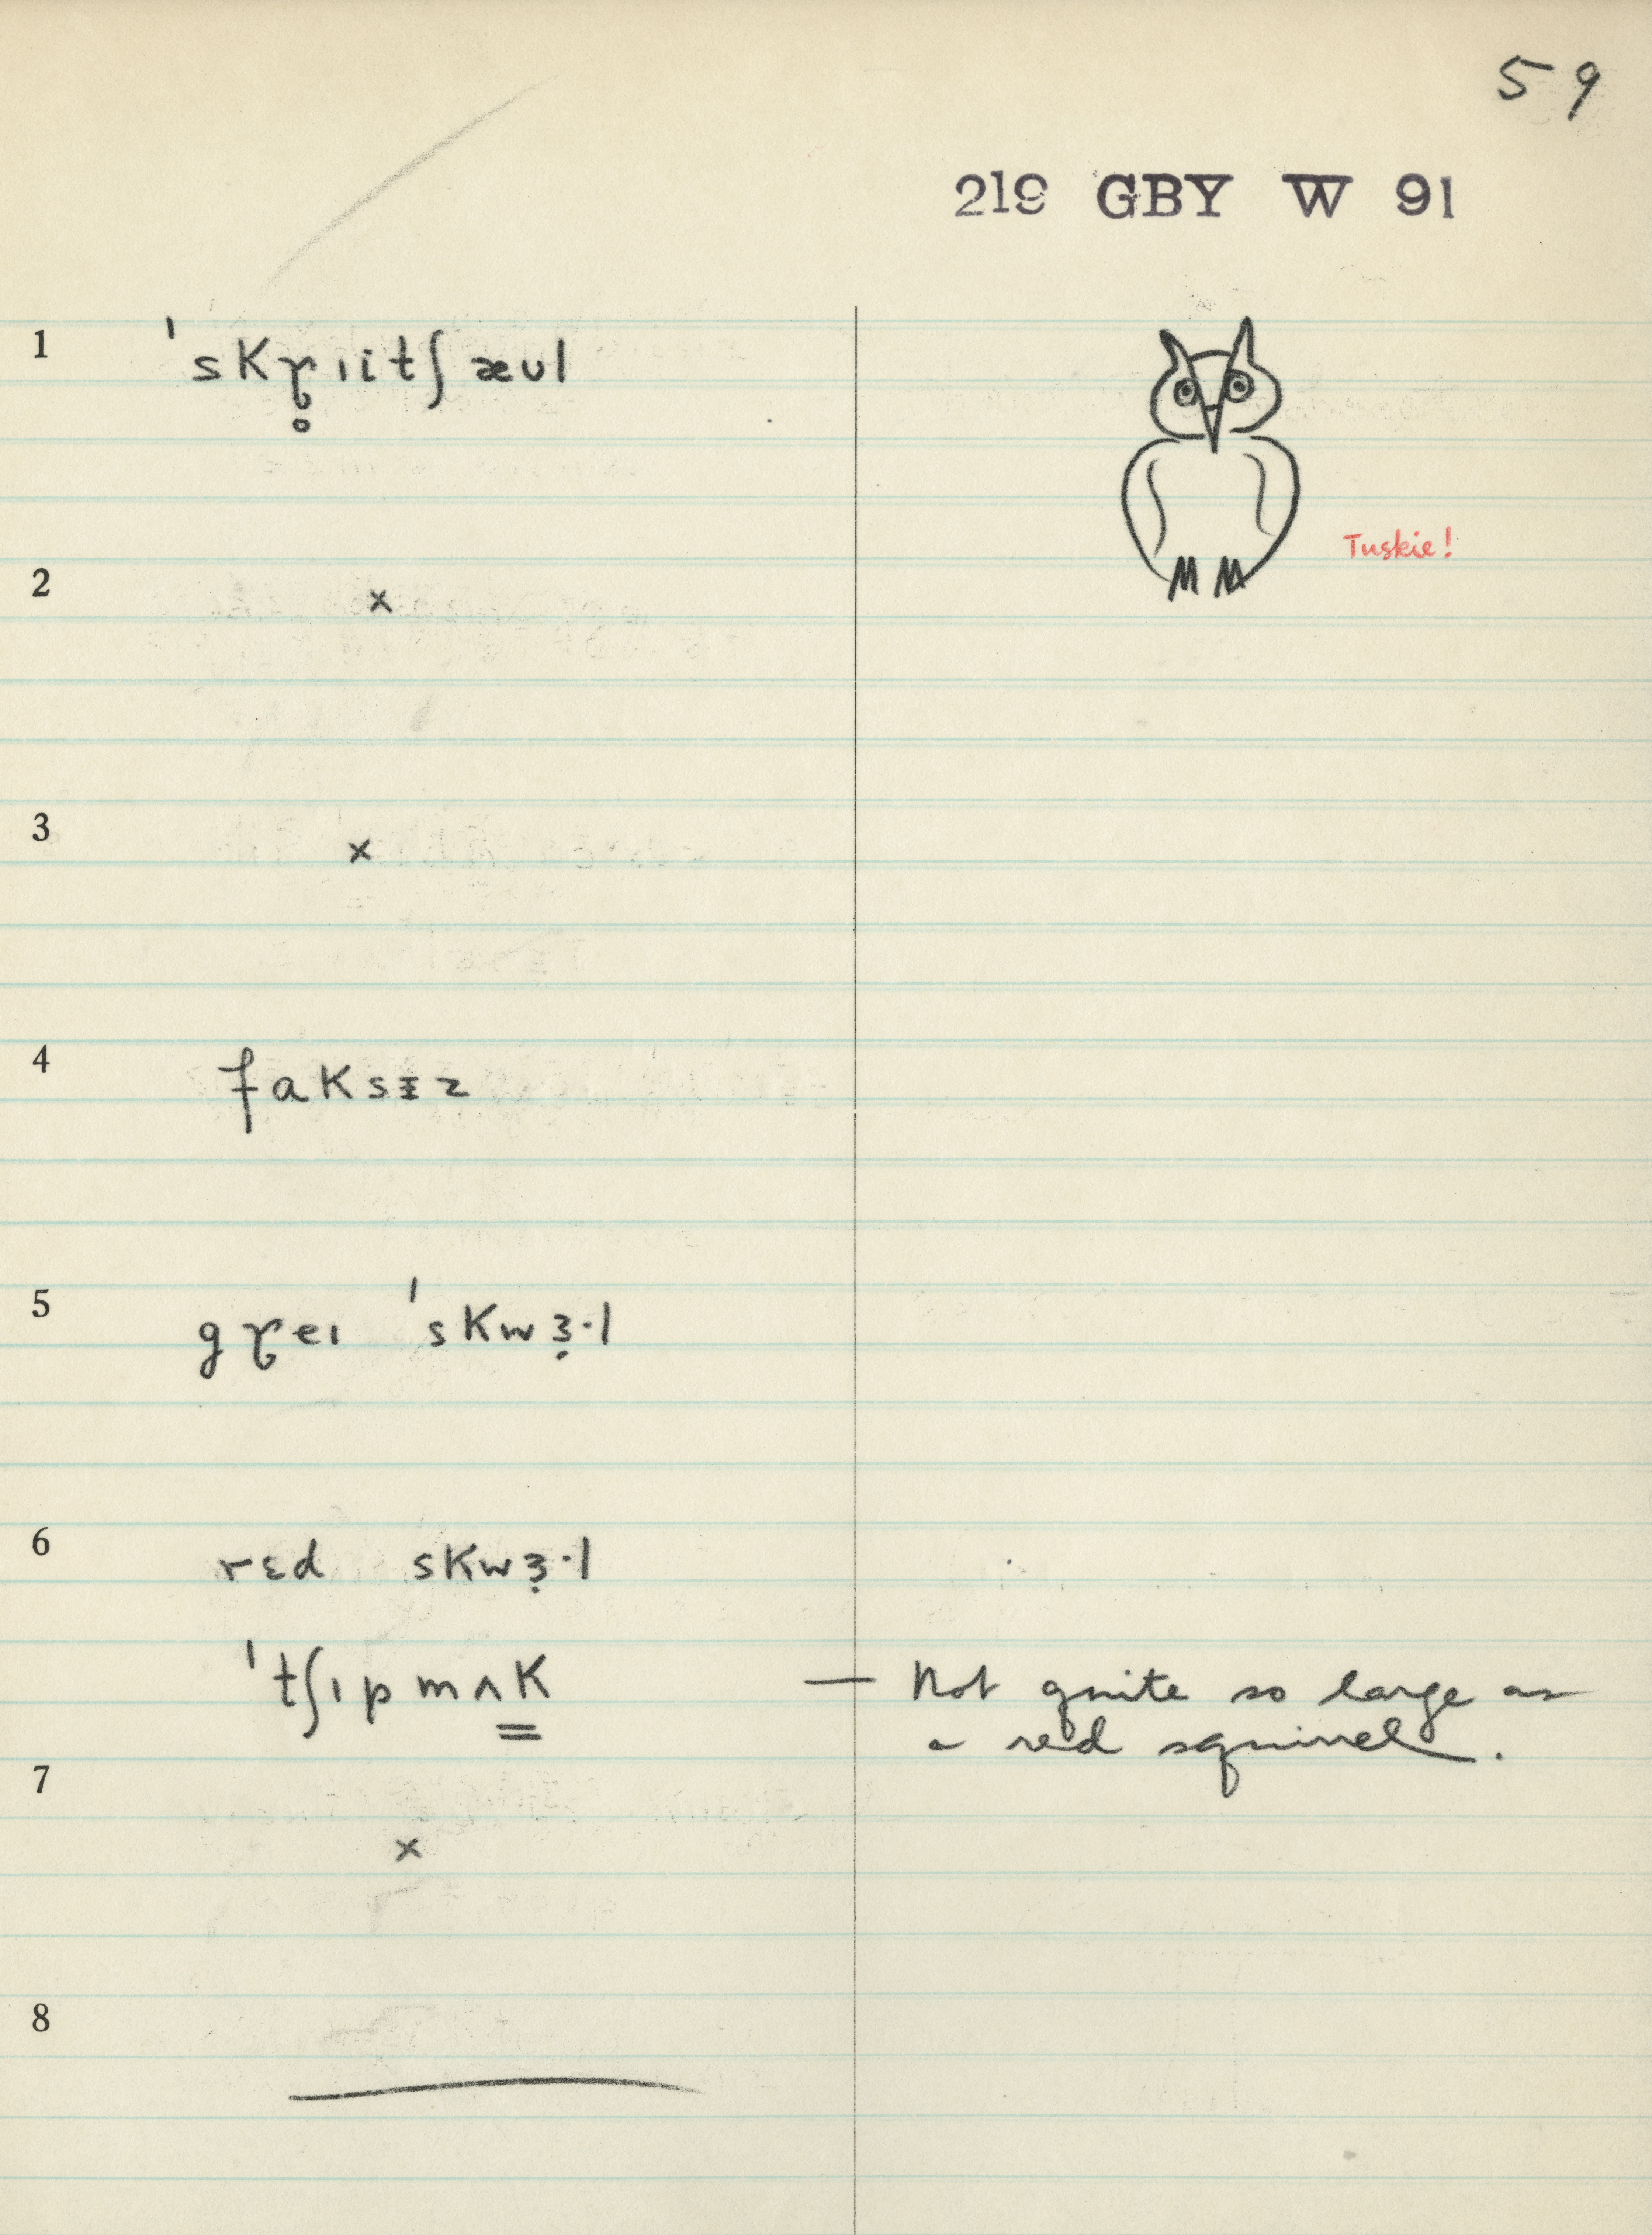 59
219 GBY W 91
1 ˈskɤ̥ɪitʃ æʊl
Tuskie!
2 ×
3 ×
4 faksɪ̵z
5 gɤeɪ ˈskwɜ̣·l
6 rɛd skwɜ̣·l
ˈtʃɪpmʌk̳ — Not quite so large as
a red squirrel.
7 ×
8